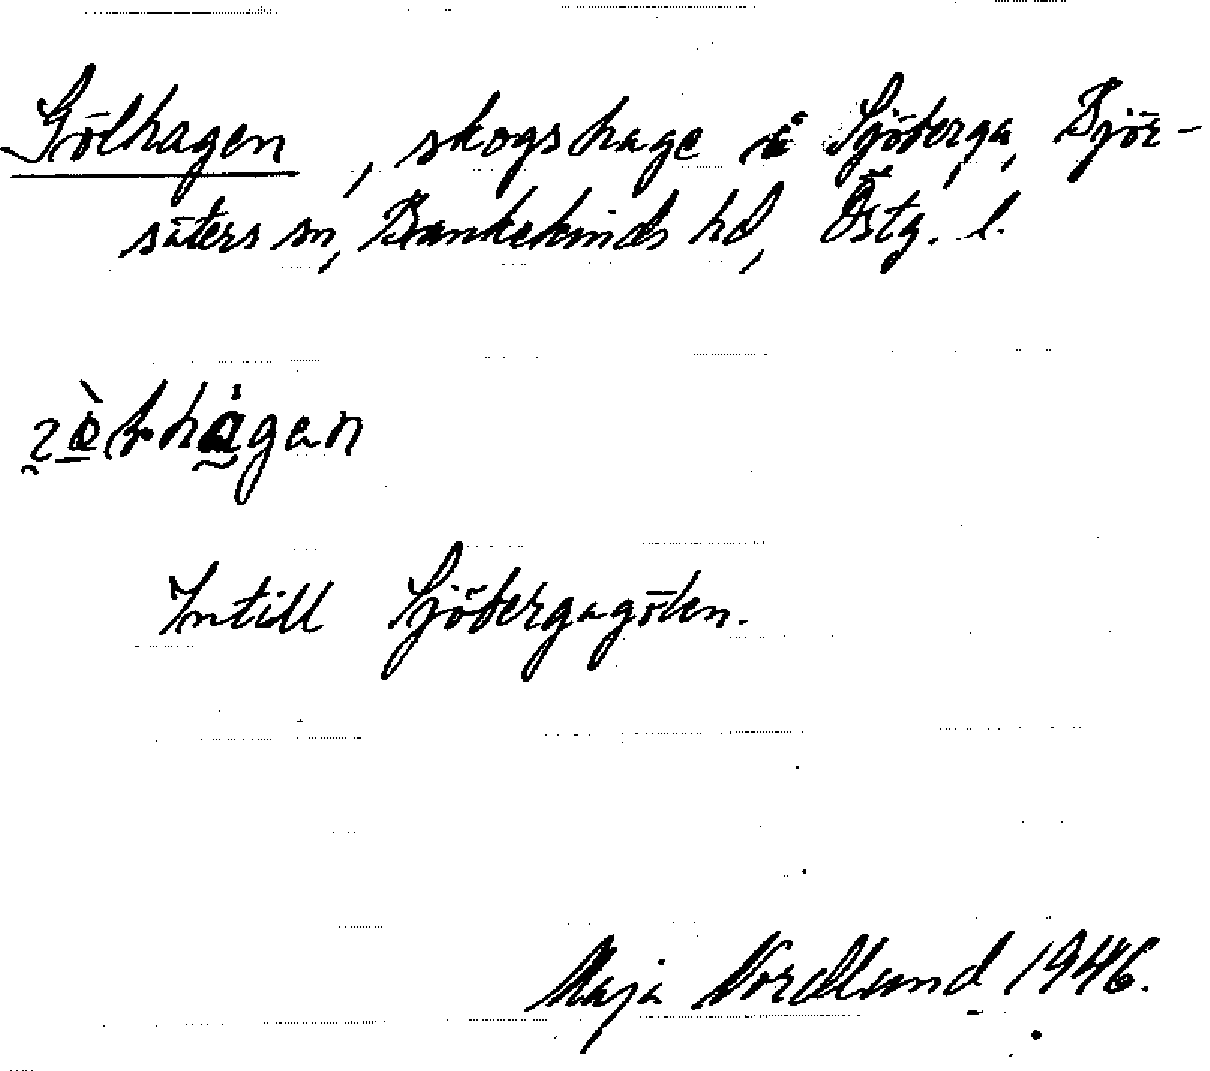 Gölhagen, skogshage å Sjöberga, Björ-
säters sn, Bankekinds hd, Östg. l.
Intill Sjöbergagölen.
Maja Nordlund 1946.